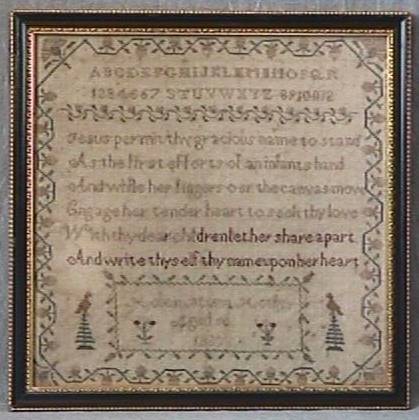 ABCDEFGHIJKLMNOPQR
1234567 STUVWXYZ 8910
Jesus permit thy gracious name to stand
As the first efforts of an infants hand
And while her fingers o er the canvas move
Engage her tender heart to seek thy love
With thy dear children let her share a part
And write thy self thy name upon her heart
Aged